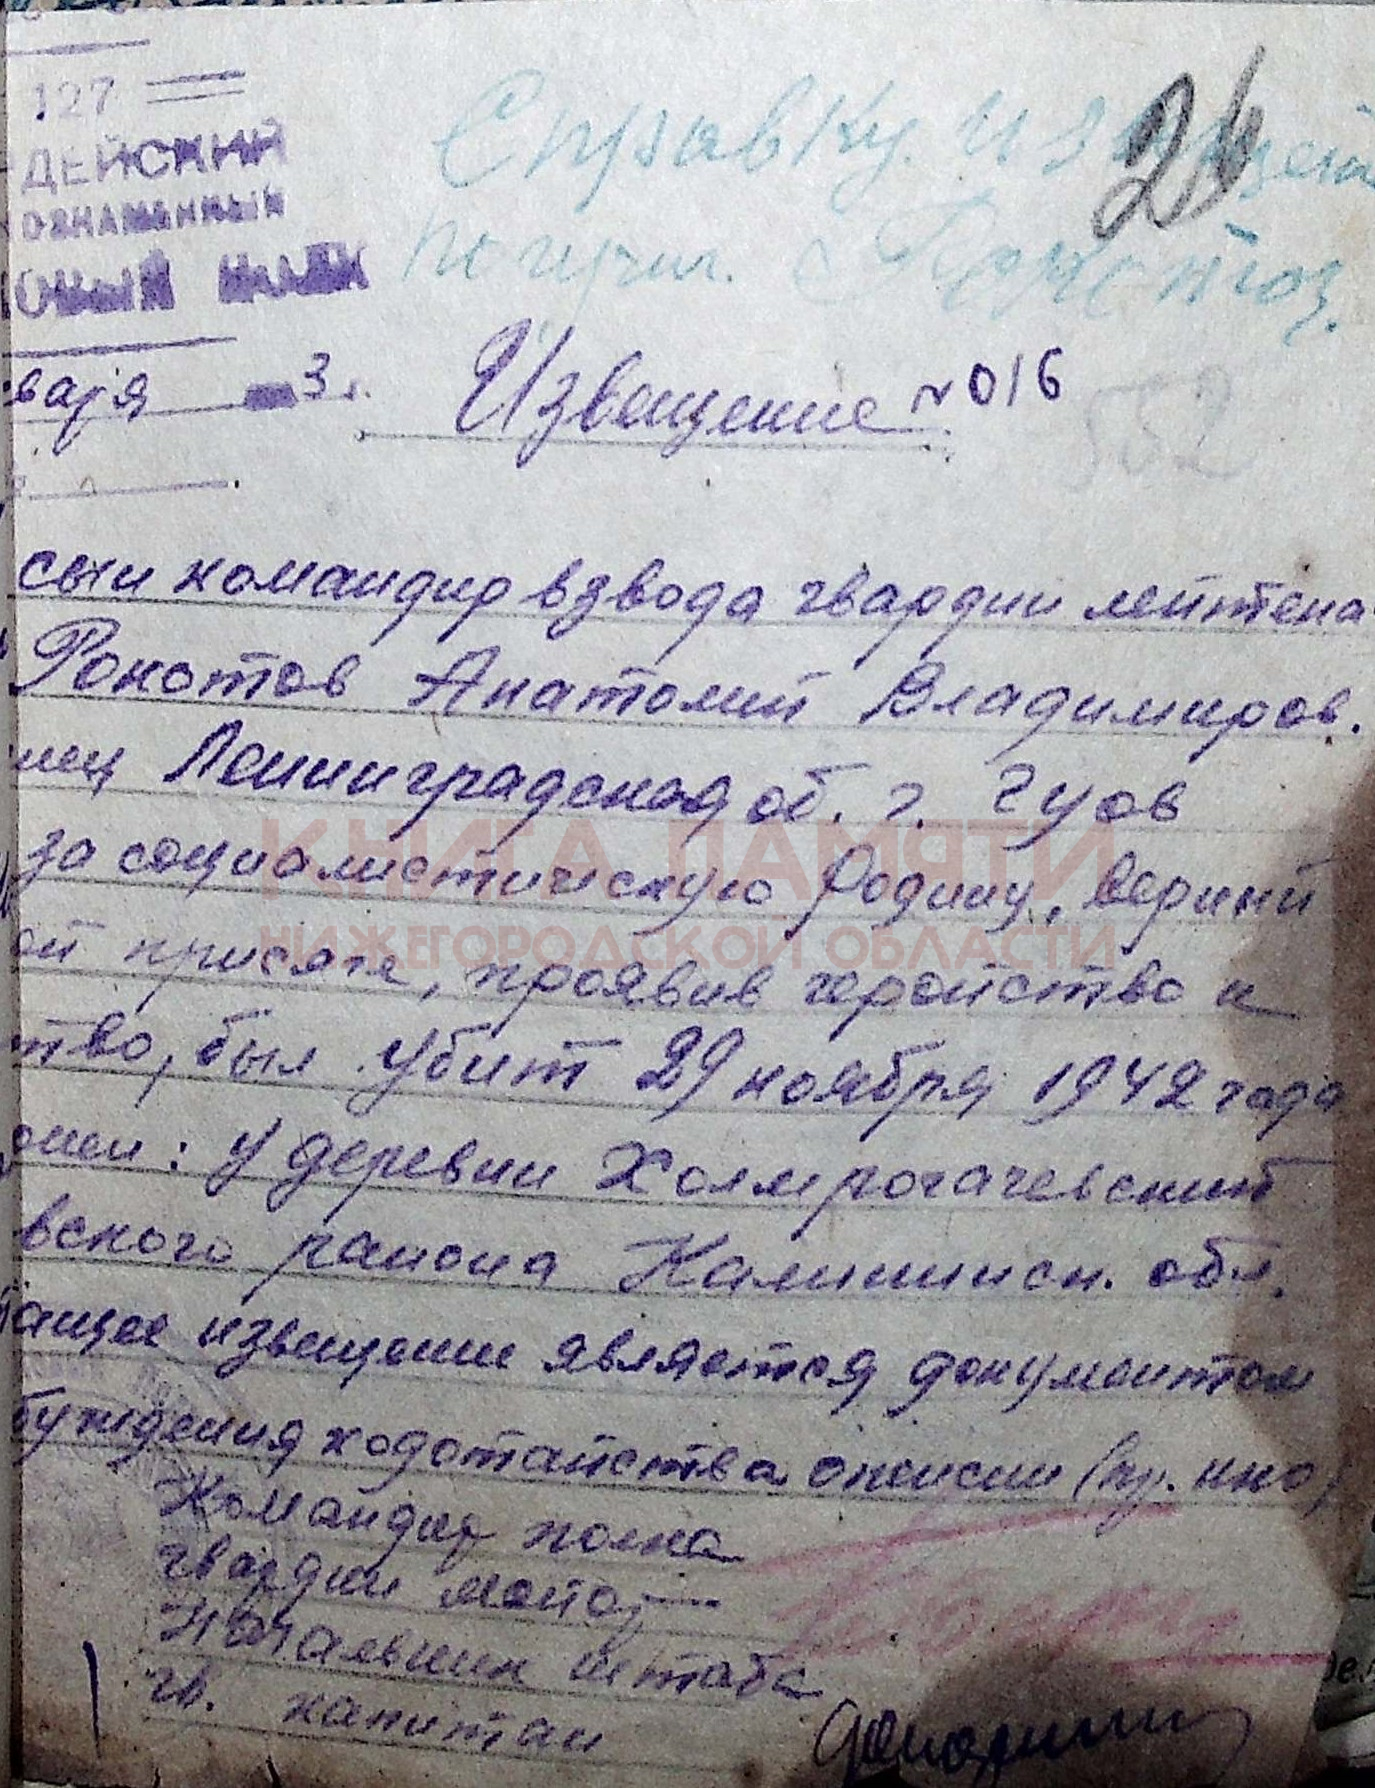 127
ДЕЙСКИЙ
ОЗНАМЕННЫЙ
ОВЫЙ ПОЛК
Справку и
получил.
26
варя 3 г.
Извещение № 016
552
сын командир взвода гвардии лейтена
Рокотов Анатолий Владимиров.
нец Ленинградской об. г. Гдов
за социалистическую Родину, верный
ой присяге, проявив геройство и
тво, был убит 29 ноября 1942 года
онен: у деревни Холмрогачевский
вского района Калининск. обл.
ащее извещение является документом
буждения ходотайства о пенсии (пр. НКО
Командир полка
гвардии майор
Начальник штаба
гв. капитан
КНИГА ПАМЯТИ
НИЖЕГОРОДСКОЙ ОБЛАСТИ